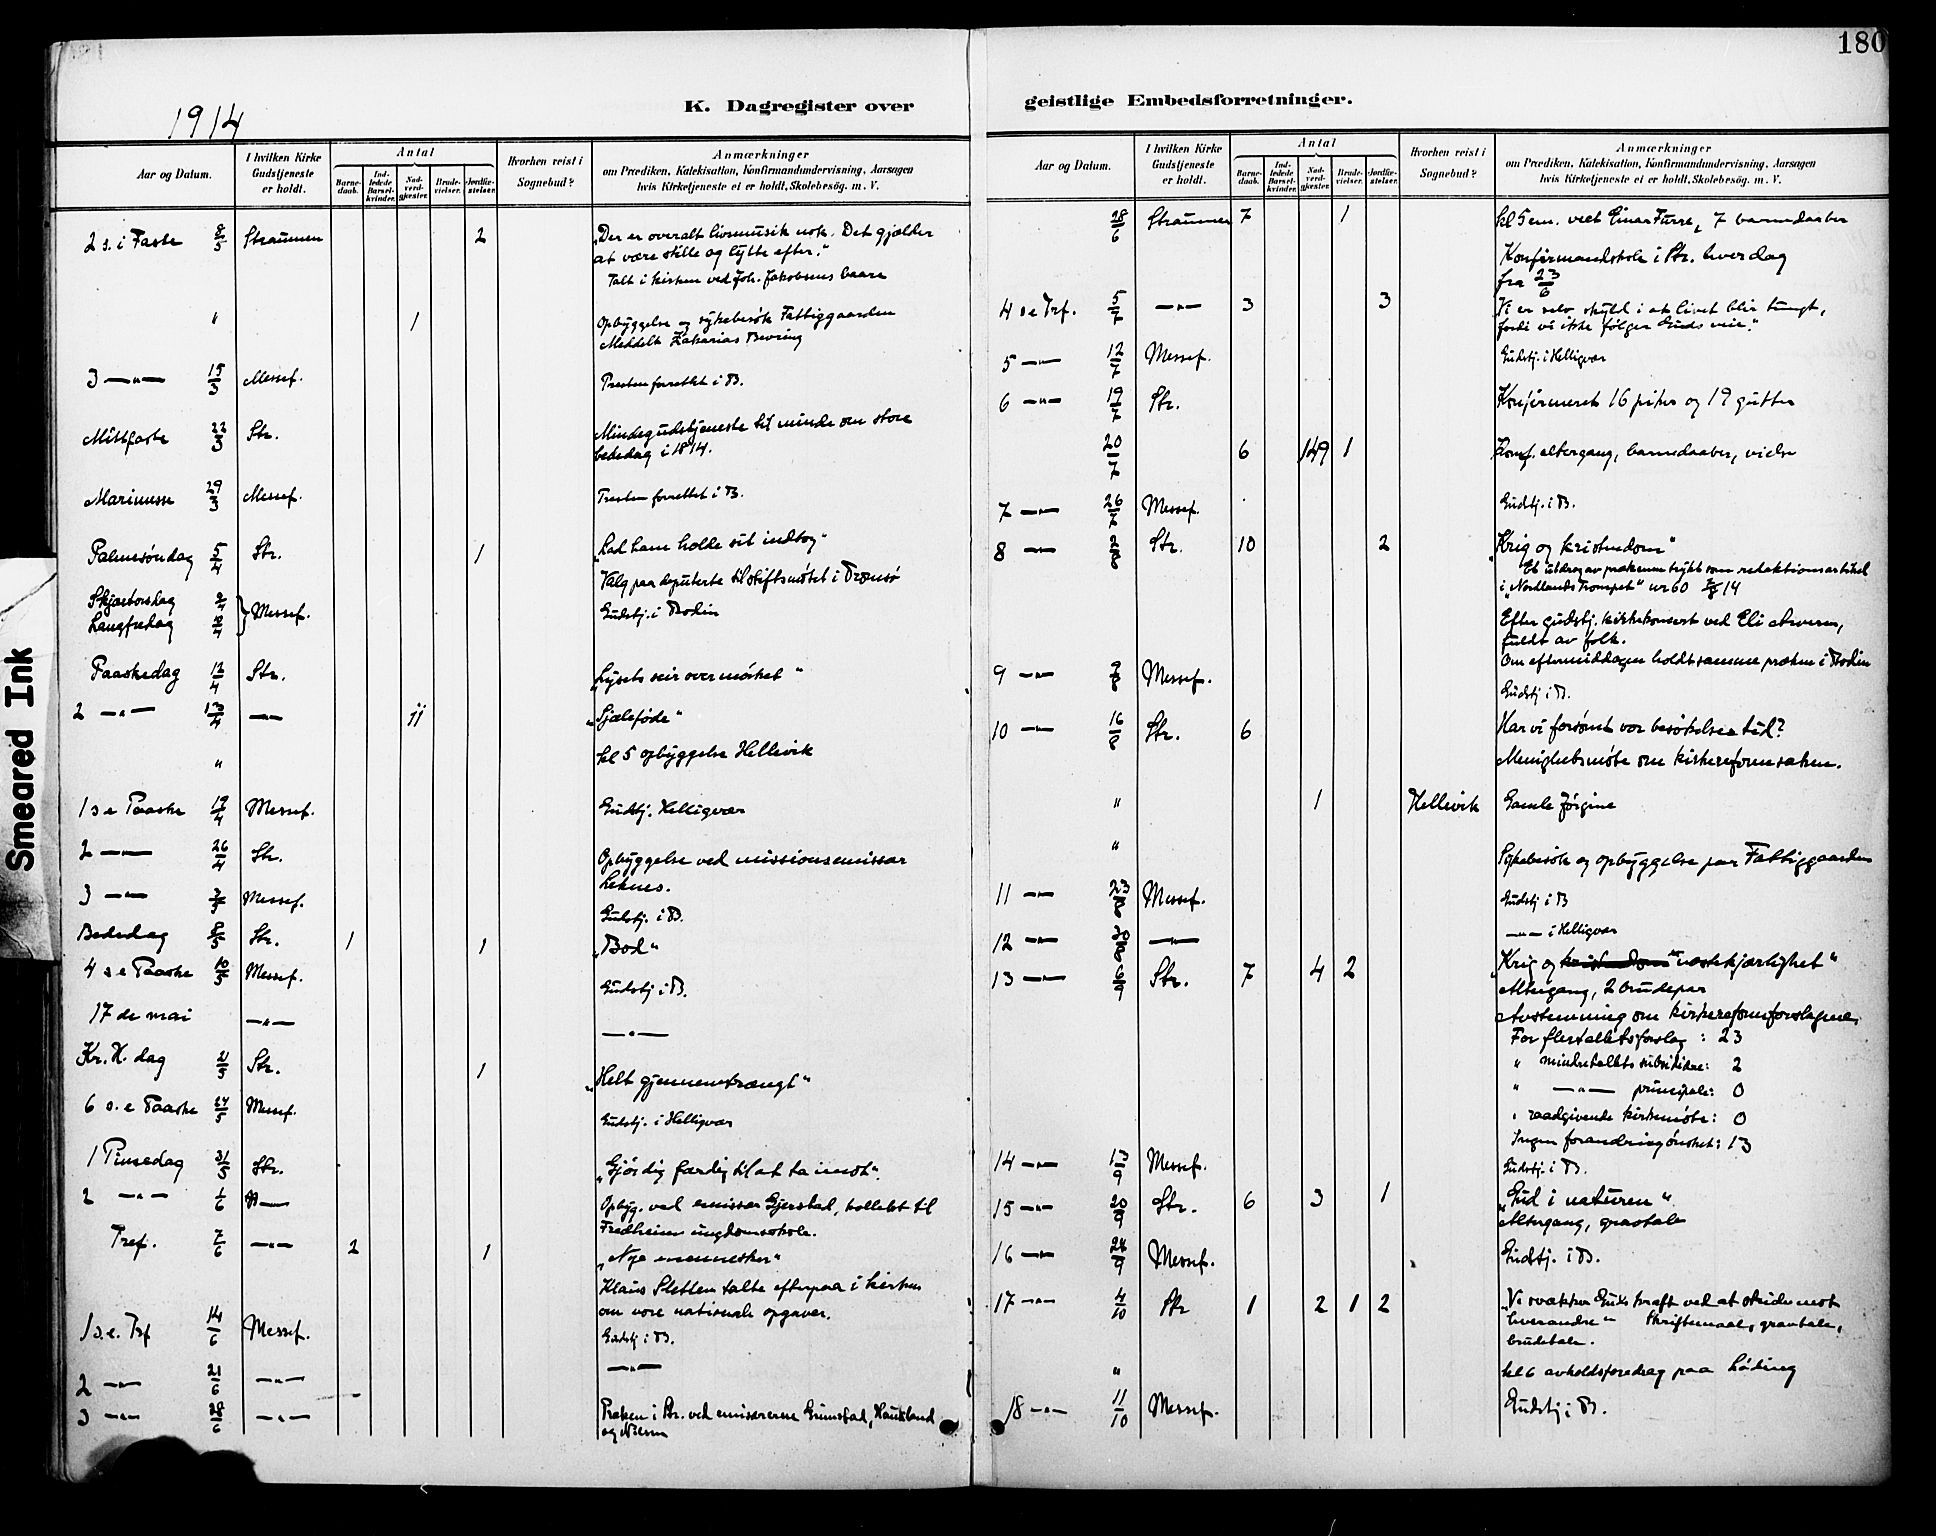 180
K. Dagregister over
geistlige Embedsforretninger.
1914
Aar og Datum.
I hvilken Kirke Gudstjeneste er holdt.
Antal
Barnedaab.
Indledede Barselkvinder.
Nadverdgjester.
Brudevielser.
Jordfæstelser.
Hvorhen reist i Sognebud?
Anmærkninger
om Prædiken, Katekisation, Konfirmandundervisning, Aarsagen
hvis Kirketjeneste ei er holdt, Skolebesøg. m. V.
2 s. i Faste 8/3 Straumen 2 „Der er overalt livsmusik nok. Det gjælder
at være stille og lytte efter."
Talt i kirken ved Joh. Jakobsens baare
" 1 Opbyggelse og sykebesøk Fattiggaarden
Meddelt Zakarias
3 —"— 15/3 Messef. Presten forrettet i B.
Mittfaste 22/3 Str. Mindegudstjeneste til minde om store
bededag i 1814.
Mariamesse 29/3 Messef. Presten forrettet i B.
Palmesøndag 5/4 Str. 1 „Lad ham holde sit indtog"
Valg paa deputerte til stiftsmøtet i Tromsø
Skjærtorsdag 9/4
Langfredag 10/4 } Messef. Gudstj. i Bodin
Paaskedag 12/4 Str. „Lysets seir over mørket"
2 —"— 13/4 —"— 11 „Sjæleføde"
" kl 5 opbyggelse Hellevik
1 s e Paaske 19/4 Messef. Gudstj. Helligvær
2 —"— 26/4 Str. Opbyggelse ved missionsemissær
Leknes.
3 —"— 3/5 Messef. Gudstj. i B.
Bededag 8/5 Str. 1 1 „Bod"
4 s e Paaske 10/5 Messef. Gudstj i B.
17 de mai —"— —"—
Kr. H. dag 21/5 Str. 1 „Helt gjennemtrængt"
6 s. e Paaske 24/5 Messef. Gudstj. i Helligvær
1 Pinsedag 31/5 Str. „Gjør dig færdig til at ta imot".
2 —"— 1/6 —"— Opbyg. ved emissær Gjerstad, kollekt til
Fredheim ungdomsskole.
Tref. 7/6 —"— 2 1 „Nye mennesker"
Klaus Sletten talte efterpaa i kirken
om vore nationale opgaver.
1 s. e. Trf 14/6 Messef. Gudstj i B.
2 —"— 21/6 —"— —"—
3 —"— 28/6 —"— Præken i Str. ved emissærerne Grimstad, Haukland
og Nilsen
Aar og Datum.
I hvilken Kirke Gudstjeneste er holdt.
Antal
Barnedaab.
Indledede Barselkvinder.
Nadverdgjester.
Brudevielser.
Jordfæstelser.
Hvorhen reist i Sognebud?
Anmærkninger
om Prædiken, Katekisation, Konfirmandundervisning, Aarsagen
hvis Kirketjeneste ei er holdt, Skolebesøg. m. V.
28/6 Straumen 7 1 kl 5 em. viet Einar Furre, 7 barnedaaber
Konfirmandskole i Str. hver dag
fra 23/6
4 s e Trf. 5/7 —"— 3 3 „Vi er selv skyld i at livet blir tungt,
fordi vi ikke følger Guds veie."
5 —"— 12/7 Messef. Gudstj. i Helligvær
6 —"— 19/7 Str. Konfirmeret 16 piker og 19 gutter
20/7 6 149 1 Konf. altergang, barnedaaber, vielse
7 —"— 26/7 Messef. Gudstj. i B.
8 —"— 2/8 Str. 10 2 „Krig og kristendom"
Et utdrag av prækenen trykt som redaktionsartikel
i „Nordlands Trompet" nr 60 14
Efter gudstj. kirkekonsert ved Eli
fuldt av folk.
Om eftermiddagen holdt samme præken i Bodin
9 —"— 9/8 Messef. Gudstj i B.
10 —"— 16/8 Str. 6 Har vi forsømt vor besøkelsestid?
Menighetsmøte om kirkereformsaken.
" 1 Hellevik Gamle Jørgine
" Sykebesøk og opbyggelse paa Fattiggaarden
11 —"— 23/8 Messef. Gudstj i B
12 —"— 30/8 —"— —"— i Helligvær
13 —"— 6/9 Str. 7 4 2 „Krig og kristendom næstekjærlighet"
Altergang, 2 brudepar
Avstemning om kirkereformforslagene.
For flertalletsforslag : 23
" mindretallets subsidiære: 2
" —"— principale: 0
" raadgivende kirkemøte: 0
Ingen forandring ønsket: 13
14 —"— 13/9 Messef. Gudstj. i B.
15 —"— 20/9 Str. 6 3 1 „Gud i naturen"
Altergang, gravtale
16 —"— 24/9 Messef. Gudstj. i B.
17 —"— 4/10 Str 1 2 1 2 „Vi svækker Guds kraft ved at stride mot
hverandre" Skriftemaal, gravtale,
brudetale.
" kl 6 avholdsforedrag paa Løding
18 —"— 11/10 Messef. Gudstj i B.
Smeared Ink